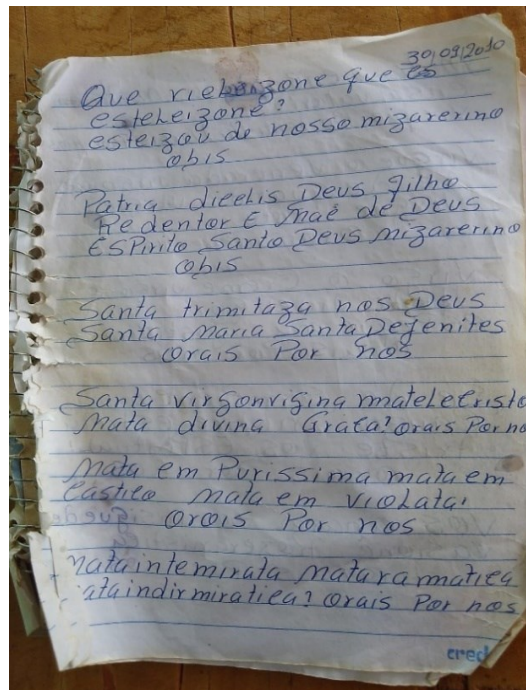 30/09/2010
Que rieleizone que es
esteleizone?
esteizou de nosso mizarerino
obis
Patria dieelis Deus Filho
Redentor E Maê de Deus
ESPirito Santo Deus mizarerino
obis
Santa trimitaza nos Deus
Santa Maria Santa Dejenites
orais Por nos
Santa virgonvigina mateleeristo
Mata divina Grata? orais Por no
Mata em Purissima mata em
Castico mata em violata.
orais Por nos
Mataintemirata Matura matica
ataindirmiratica? orais Por nos
cred